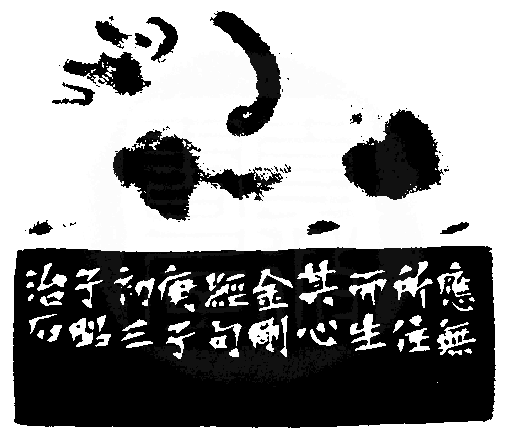 應無
所住
而生
其心
金剛
經句
庚子
初三
子昭
治石